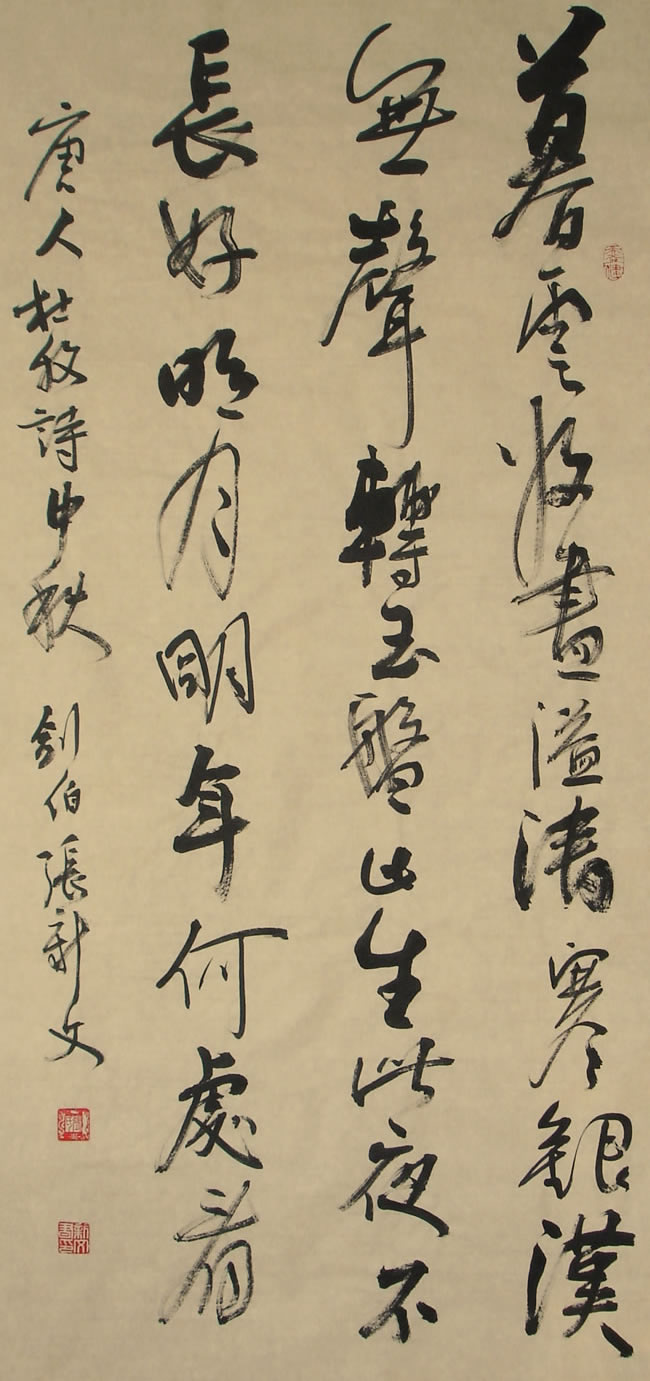 暮雲收盡溢清寒銀漢
無聲轉玉盤此生此夜不
長好明月明年何處看
唐人杜牧詩中秋 劍伯張新文